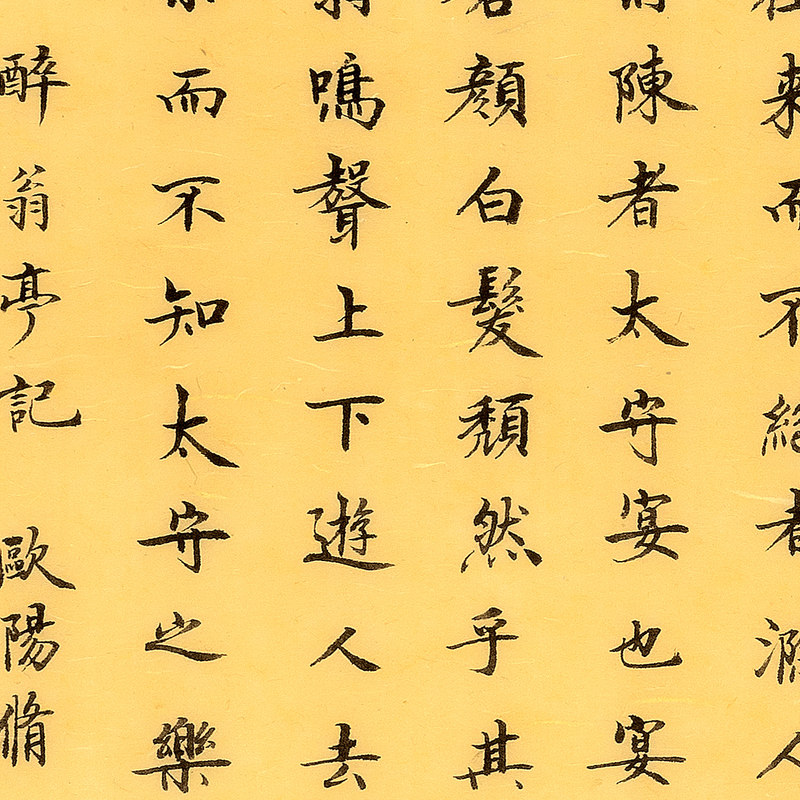 來而不絕者滁人
陳者太守宴也宴
顏白髮頹然乎其
鳴聲上下遊人去
而不知太守之樂
醉翁亭記 歐陽脩